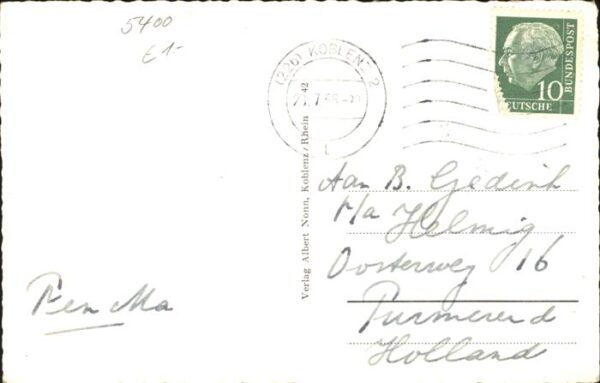 5400
€1-
(22b) KOBLENZ 2
10
DEUTSCHE
BUNDESPOST
Verlag Albert Nonn, Koblenz/Rhein
42
Aan B.
p/a Helmig
Oosterweg 16
Purmerend
Holland
Ma